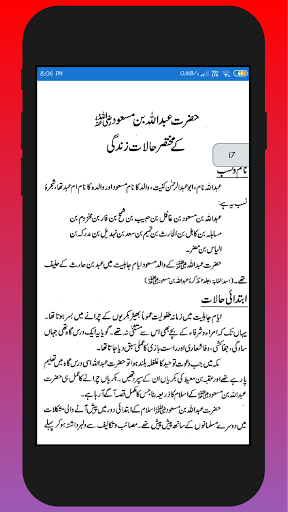 8:06 PM
0.1KB/s
حضرت عبداللہ بن مسعود رضی اللہ عنہ
کے مختصر حالات زندگی
17
نام ونسب
عبداللہ نام، ابو عبدالرحمٰن کنیت، والد کا نام مسعود اور والدہ کا نام ام عبد تھا، شجرۂ
نسب یہ ہے:
عبداللہ بن مسعود بن غافل بن حبیب بن شمخ بن فار بن مخزوم بن
صاہلہ بن کاہل بن الحارث بن تمیم بن سعد بن ہذیل بن مدرکہ بن
الیاس بن مضر۔
حضرت عبداللہ رضی اللہ عنہ کے والد مسعود ایام جاہلیت میں عبد بن حارث کے حلیف
تھے۔ (اسد الغابہ، تذکرۂ عبداللہ بن مسعود)
ابتدائی حالات
ایام جاہلیت میں زمانہ طفولیت عموماً بھیڑ بکریوں کے چرانے میں بسر ہوتا تھا۔
یہاں تک کہ امراء و شرفاء کے بچے بھی اس سے مستثنیٰ نہ تھے۔ گویا یہ ایک درس گاہ تھی جہاں
سادگی، جفاکشی، وفا شعاری اور راست بازی کا عملی سبق دیا جاتا تھا۔
مکہ میں جب دعوت توحید کا غلغلہ بلند ہوا تو حضرت عبداللہ اسی درس گاہ میں تعلیم
پا رہے تھے اور عقبہ بن معیط کی بکریاں ان کے سپرد تھیں۔ بکریاں چرانے کا عمل ہی حضرت
عبداللہ بن مسعود رضی اللہ عنہ کے اسلام کا ذریعہ بنا جس کا مکمل قصہ آگے آ رہا ہے۔
حضرت عبداللہ بن مسعود رضی اللہ عنہ اسلام کے ابتدائی دور میں پیش آنے والی مشکلات
میں دوسرے مسلمانوں کے ساتھ پیش پیش تھے۔ مصائب و تکالیف سے دلبرداشتہ ہو کر پہلے